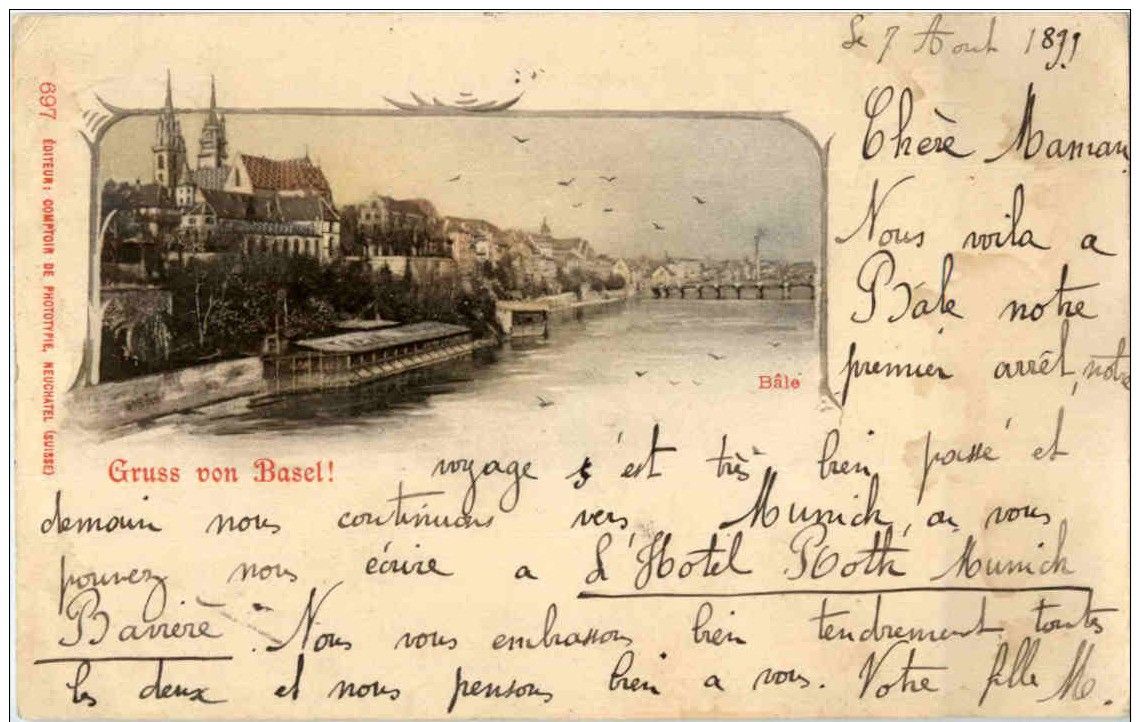 Le 7 Aout 1899
Chère Maman
Nous voila a
Bâle notre
premier arrêt, notre
voyage s'est très bien passé et
demain nous continuons vers Munich, ou vous
pouvez nous écrire a L'Hotel Roth Munich
Bavière. Nous vous embrassons bien tendrement toutes
les deux et nous pensons bien a vous. Votre fille M.
Bâle
Gruss von Basel!
697 ÉDITEUR: COMPTOIR DE PHOTOTYPIE, NEUCHATEL (SUISSE)